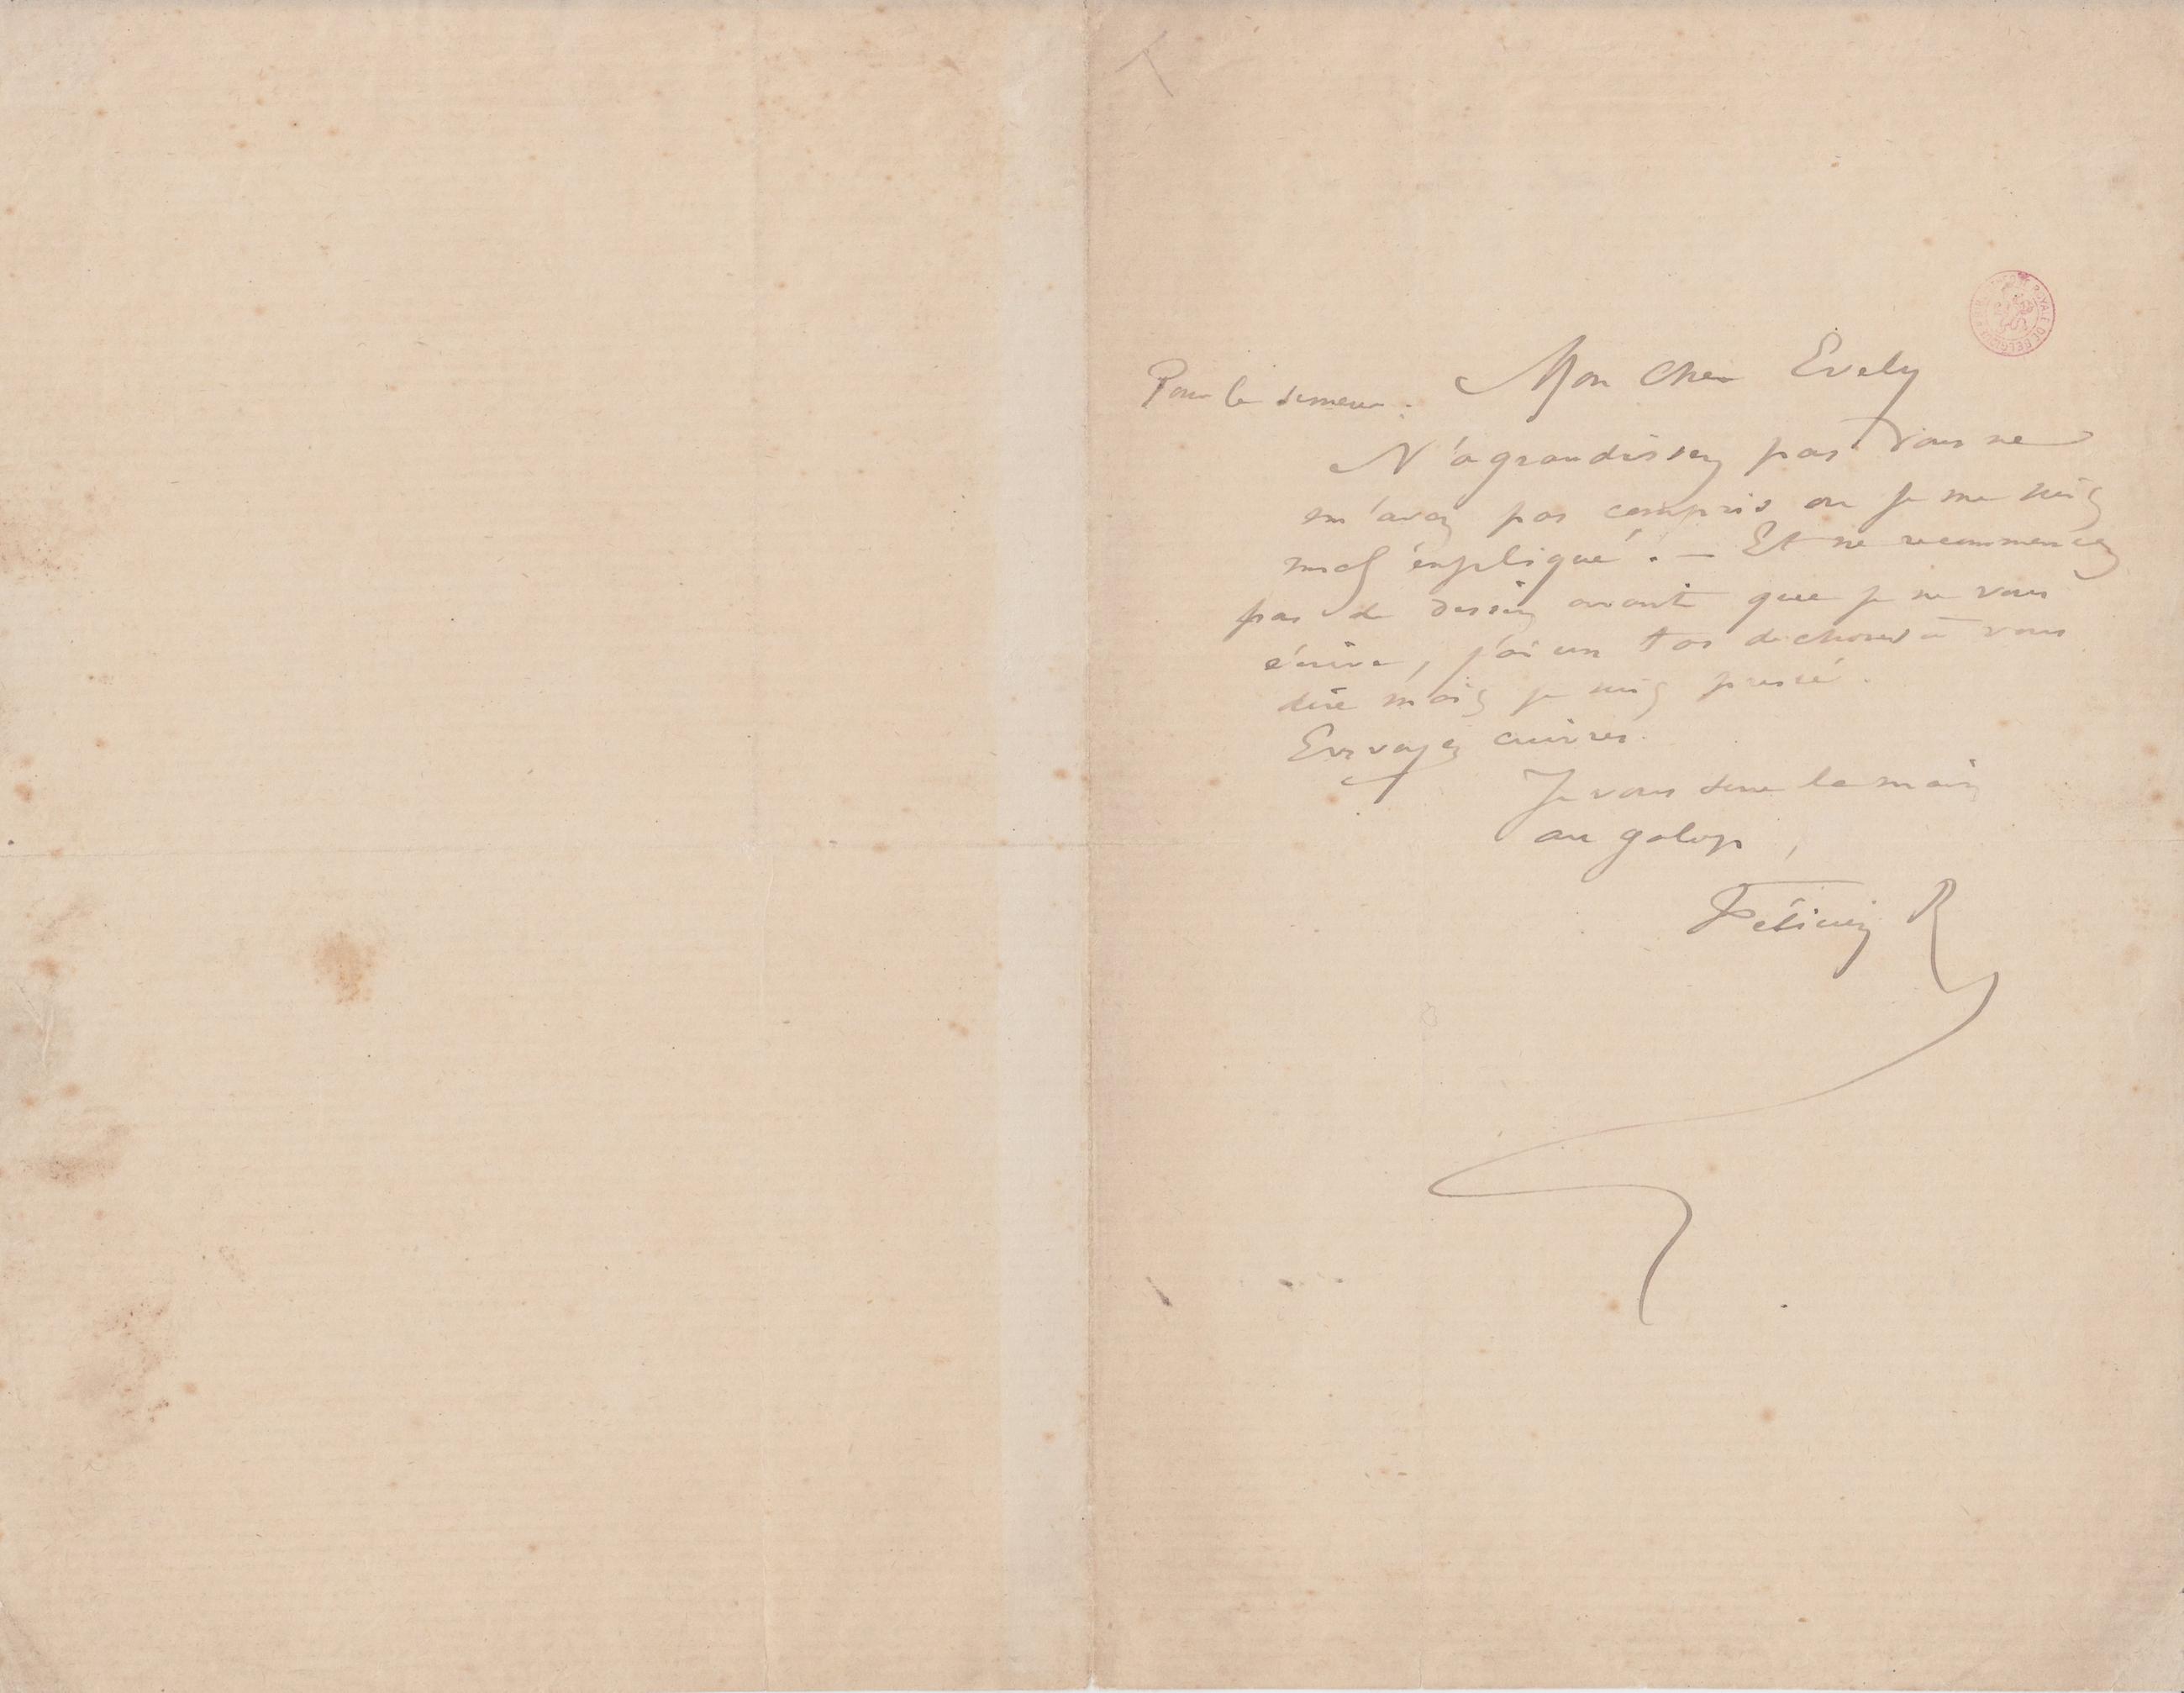 Mon Cher Evely
Pour le semeur :
N'agrandissez pas vous ne
m'avez pas compris ou je me suis
mal expliqué. — Et ne recommencez
pas de dessin avant que je ne vous
écrive, j'ai un tas de choses à vous
dire mais je suis pressé.
Envoyez cuivres.
Je vous serre la main
au galop,
Félicien R
ROYALE DE BELGIQUE